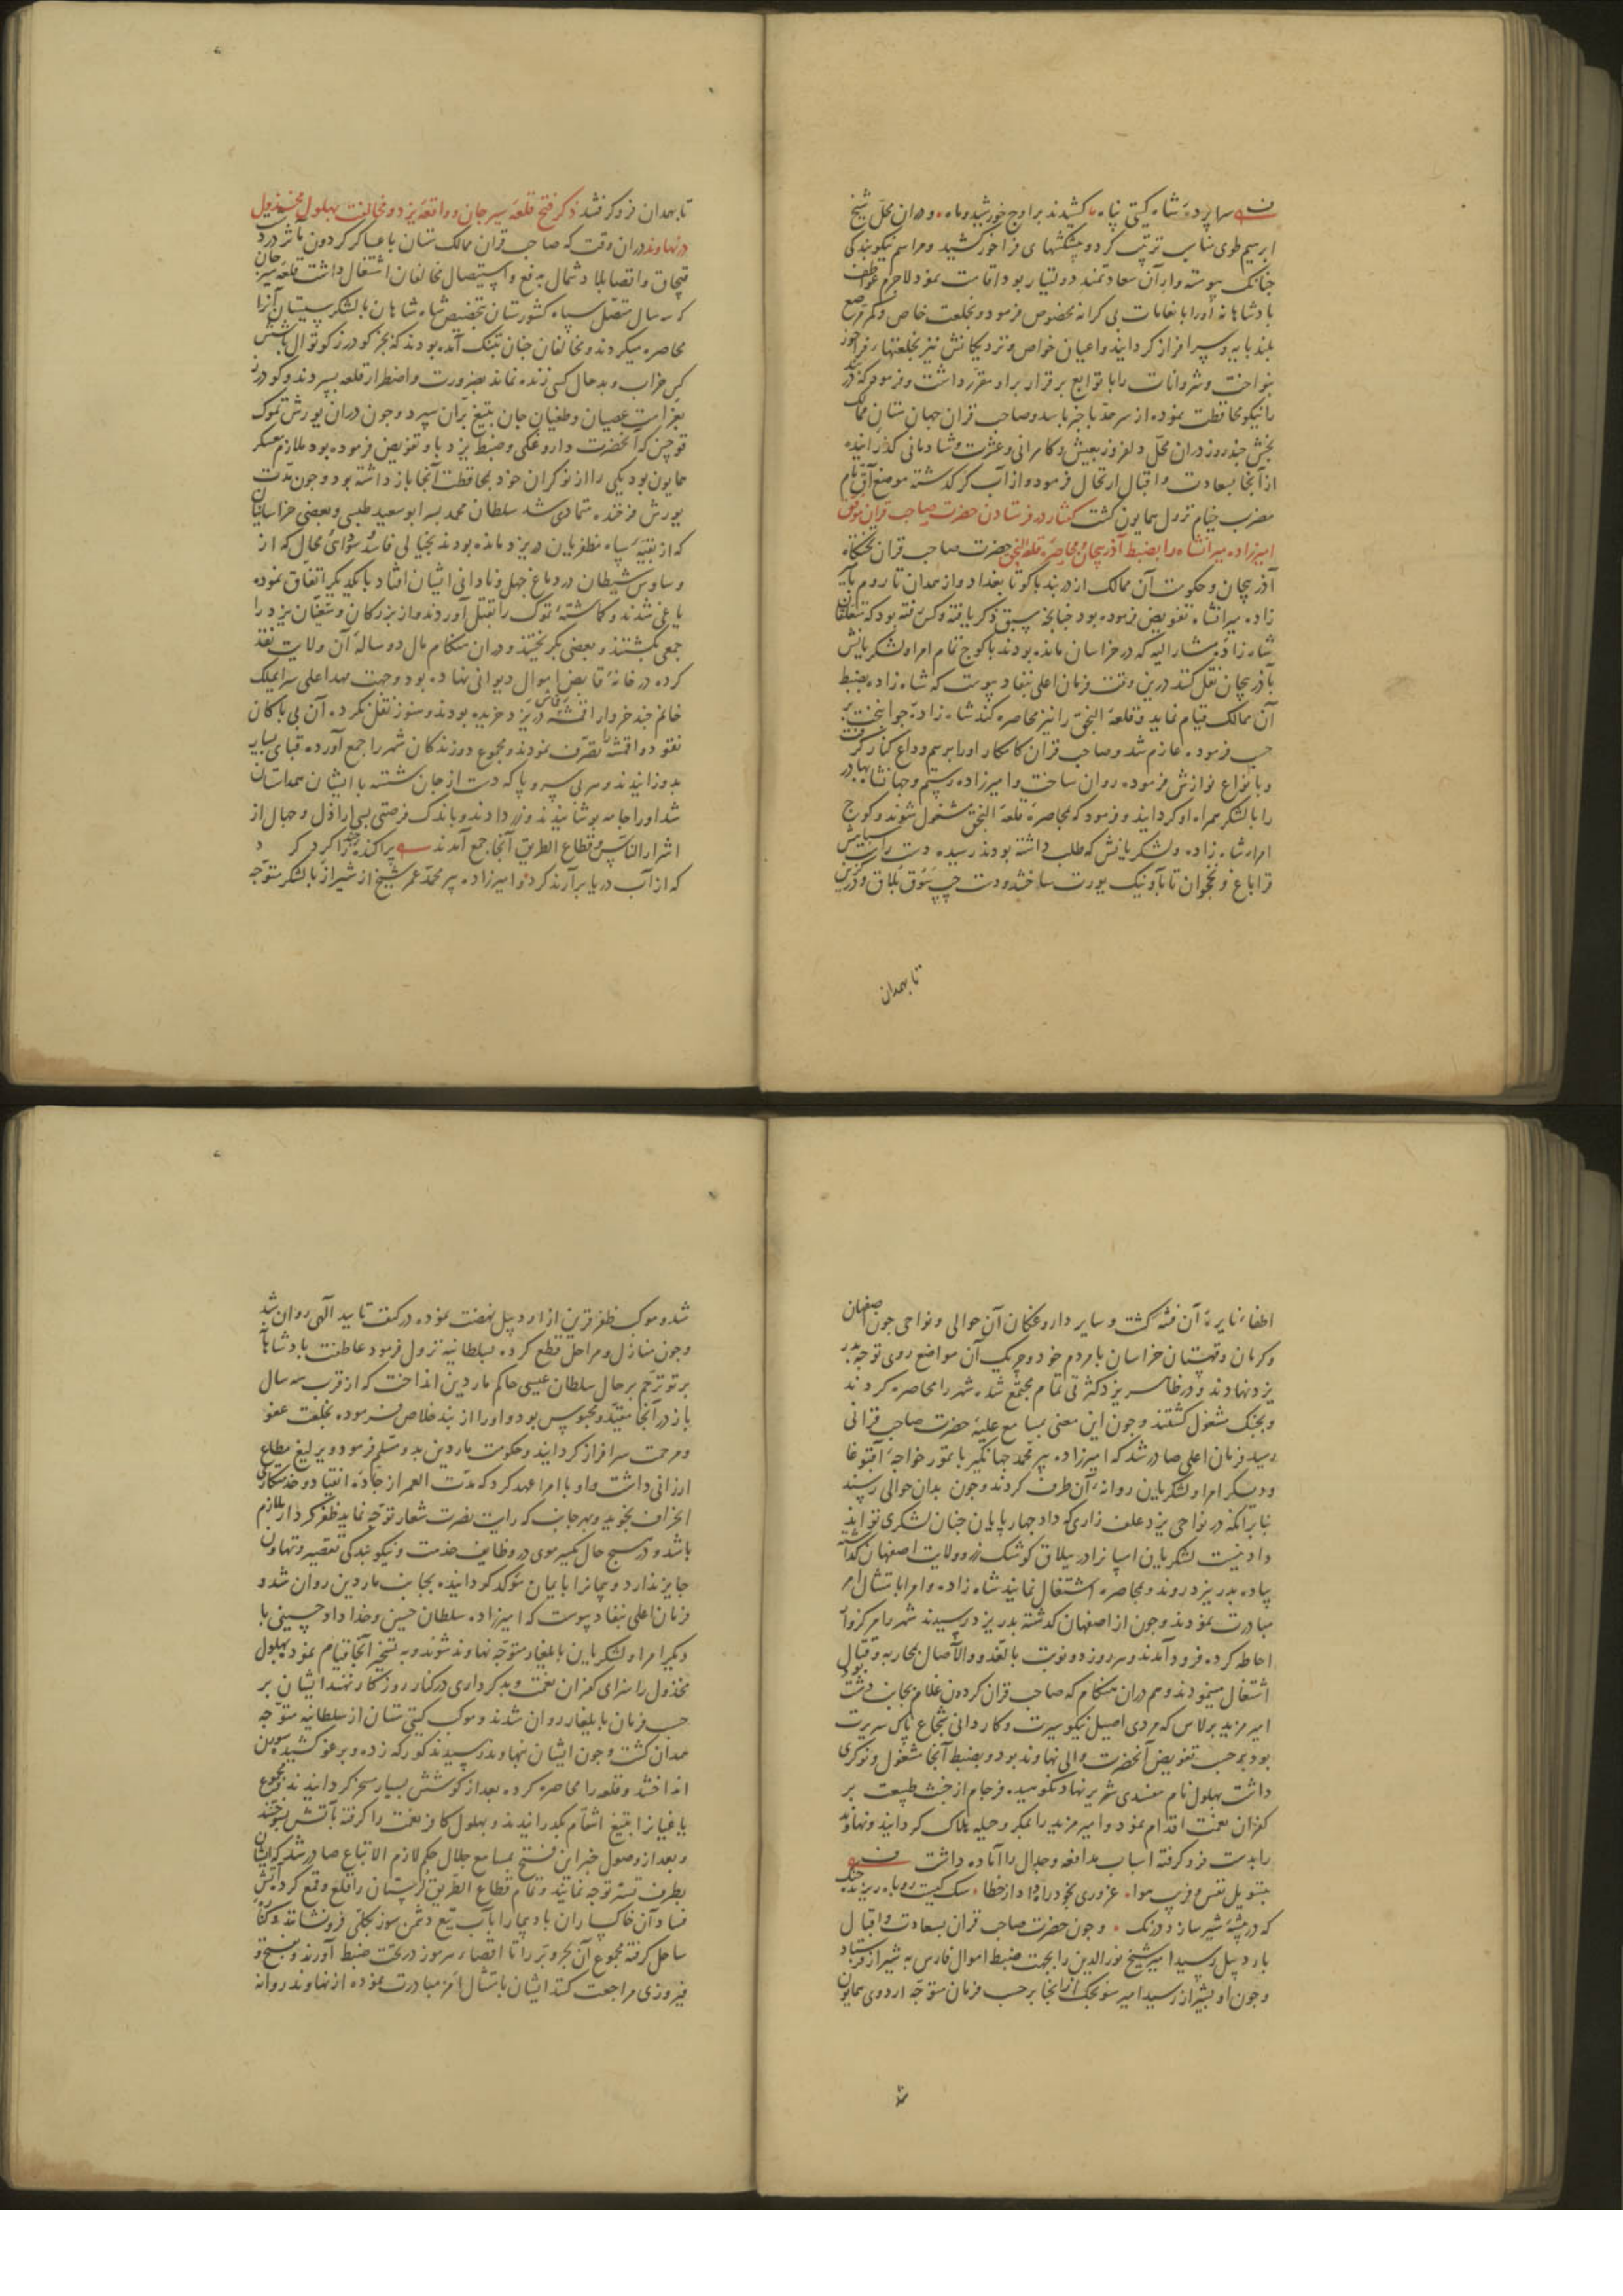 سراپردهٔ شاه گیتی پناه کشیدند بر اوج خورشید و ماه و دران محل شیخ
ابرهیم طوی مناسب ترتیب کرد و پیشکشهای فراخور کشید و مراسم نیکو بندکی
جنانک پیوسته واران سعادتمند دولتیار بود اقامت نمود لاجرم عواطف
بادشاهانه اورا بانعامات بی کرانه مخصوص فرمود و بخلعت خاص و کمر مرصع
بلند پایه و سرافراز کردانید واعیان خواص و نزدیکانش نیز بخلعتهاء فراخور
بنواخت و شروانات را با توابع برقرار براو مقرر داشت و فرمود که دربند
را نیکو محافظت نموده از سرحد باخبر باشد وصاحب قران جهان ستان ممالک
بخش جند روز دران محل دلفروز بعیش و کامرانی و عشرت و شادمانی کذرانیده
از آنجا بسعادت و اقبال ارتحال فرمود و از آب کر کذشته موضع آق تام
مضرب خیام نزول همایون کشت کفتار در فرستادن حضرت صاحب قران موفق
امیرزاده میرانشاه را بضبط آذربیجان و محاصرهٔ قلعهٔ النجق حضرت صاحب قران تختکاه
آذربیجان و حکومت آن ممالک از دربند باکو تا بغداد و از همدان تا روم بامیر
زاده میرانشاه تفویض فرموده بود جنانجه سبق ذکر یافته و کس رفته بود که متعلقان
شاه زادهٔ مشارالیه که در خراسان مانده بودند باکوج تمام امرا و لشکریانش
بآذربیجان نقل کنند درین وقت فرمان اعلی بنفاد پیوست که شاه زاده بضبط
آن ممالک قیام نماید و قلعهٔ النجق را نیز محاصره کند شاه زادهٔ جوانبخت بر
حسب فرموده عازم شد و صاحب قران کامکار اورا برسم وداع کنار کرفت
و بانواع نوازش فرموده روان ساخت و امیرزاده رستم و جهانشاه بهادر
را با لشکر همراه او کردانید و فرمود که بمحاصرهٔ قلعهٔ النجق مشغول شوند و کوج
امراء شاه زاده و لشکریانش که طلب داشته بودند رسیده دست راست سپاهش
قراباغ و نخجوان تا باونیک یورت ساختند و دست جپ سوق بلاق و درکزین
تا بهمدان
تا بهمدان فرو کرفتند ذکر فتح قلعهٔ سیرجان و واقعهٔ یزد و مخالفت بهلول مخذول
در نهاوند دران وقت که صاحب قران ممالک ستان با عساکر کردون مآثر در دشت
قبجاق و اقصا بلاد شمال بدفع و استیصال مخالفان اشتغال داشت قلعهٔ سیرجان
که سه سال متصل سپاه کشورستان بتخصیص شاه شاهان با لشکر سیستان آنرا
محاصره میکردند و مخالفان جنان بتنک آمده بودند که بجز کودرز کوتوال با شش
کس خراب و بدحال کسی زنده نماند بضرورت و اضطرار قلعه بسپردند و کودرز
بغرامت عصیان و طغیان جان بتیغ بران سپرد و جون دران یورش تموک
قوجین که آنحضرت داروغکی و ضبط یزد باو تفویض فرموده بود ملازم معسکر
همایون بود یکی را از نوکران خود بمحافظت آنجا باز داشته بود و جون مدت
یورش فرخنده متمادی شد سلطان محمد پسر ابو سعید طبسی و بعضی خراسانیان
که از بقیهٔ سپاه مظفریان در یزد مانده بودند بخیالی فاسد و سودای محال که از
وساوس شیطان در دماغ جهل و نادانی ایشان افتاد با یکدیکر اتفاق نموده
یاغی شدند و کماشتهٔ تموک را بقتل آوردند و از بزرکان و متعینان یزد را
جمعی بکشتند و بعضی بکریختند و دران هنکام مال دو سالهٔ آن ولایت نقد
کرده در خانهٔ قابض اموال دیوانی نهاده بود و جهت مهد اعلی سرایملک
خانم جند خروار اقمشه در یزد خریده بودند و هنوز نقل نکرده آن بی باکان
نقود و اقمشه را تصرف نمودند و مجموع درزندکان شهر را جمع آورده قبای بسیار
بدوزانیدند و هر بی سر و پا که دست از جان شسته با ایشان همداستان
شد اورا جامه پوشانیدند و زر دادند و باندک فرصتی بسی اراذل و جهال از
اشرار الناس و قطاع الطریق آنجا جمع آمدند پراکنده
که از آب دریا برآرند کرد و امیرزاده پیر محمد عمر شیخ از شیراز با لشکر متوجه
اطفاء نایرهٔ آن فتنه کشت و سایر داروغکان آن حوالی و نواحی جون اصفهان
و کرمان و قهستان خراسان با مردم خود و جریک آن مواضع روی توجه بدر
یزد نهادند و در ظاهر یزد کثرتی تمام مجتمع شده شهر را محاصره کردند
و بجنک مشغول کشتند و جون این معنی بمسامع علیهٔ حضرت صاحب قرانی
رسید فرمان اعلی صادر شد که امیرزاده پیر محمد جهانکیر با تمور خواجهٔ آقبوغا
و دیکر امرا و لشکریان روانهٔ آن طرف کردند و جون بدان حوالی رسند
بنابر آنکه در نواحی یزد علف زاری که داد جهار پایان جنان لشکری تواند
داد نیست لشکریان اسپانرا در ییلاق کوشک زر و ولایت اصفهان کذاشته
پیاده بدر یزد روند و بمحاصره اشتغال نمایند شاه زاده و امرا بامتثال امر
مبادرت نمودند و جون از اصفهان کذشته بدر یزد رسیدند شهر را مرکزوار
احاطه کرده فرود آمدند و هر روز دو نوبت بالغدو والآصال بمحاربه و قتال
اشتغال مینمودند و هم دران هنکام که صاحب قران کردون غلام بجانب دشت بود
امیر مزید برلاس که مردی اصیل نیکو سیرت و کاردانی شجاع پاک سریرت
بود برحسب تفویض آنحضرت والی نهاوند بود و بضبط آنجا مشغول و نوکری
داشت بهلول نام مفسدی شریر نهاد نکوهیده فرجام از خبث طبیعت بر
کفران نعمت اقدام نمود و امیر مزید را بمکر و حیله هلاک کردانید و نهاوند
را بدست فرو کرفته اسباب مدافعه و جدال را آماده داشت
بتسویل نفس و فریب هوا غروری بخود راه داد از خطا سک کیست روباه ریزنده جنک
که در بیشهٔ شیر سازد درنک و جون حضرت صاحب قران بسعادت و اقبال
باردبیل رسید امیر شیخ نورالدین را بجهت ضبط اموال فارس به شیراز فرستاد
و جون او بشیراز رسید امیر سونجک از آنجا برحسب فرمان متوجه اردوی همایون
شد
شد و موکب ظفر قرین از اردبیل نهضت نموده در کنف تایید الهی روان شد
و جون منازل و مراحل قطع کرده بسلطانیه نزول فرمود عاطفت بادشاهانه
پرتو ترحم برحال سلطان عیسی حاکم ماردین انداخت که از قرب سه سال
باز در آنجا مقید و محبوس بود و اورا از بند خلاص فرموده بخلعت عفو
و مرحمت سرافراز کردانید و حکومت ماردین بدو مسلم فرمود و یرلیغ مطاع
ارزانی داشت و او با امرا عهد کرد که مدت العمر از جادهٔ انقیاد و خدمتکاری
انحراف نجوید و بهر جانب که رایت نصرت شعار توجه نماید ظفر کردار ملازم
باشد و در هیج حال یکسر موی در وظایف خدمت و نیکو بندکی تقصیر و تهاون
جایز ندارد و پیمانرا بایمان مؤکد کردانیده بجانب ماردین روان شد و
فرمان اعلی بنفاد پیوست که امیرزاده سلطان حسین و خداداد حسینی با
دیکر امرا و لشکریان بایلغار متوجه نهاوند شوند و به تسخیر آنجا قیام نمود بهلول
مخذول را سزای کفران نعمت و بدکرداری در کنار روزکار نهند ایشان بر
حسب فرمان بایلغار روان شدند و موکب کیتی ستان از سلطانیه متوجه
همدان کشت و جون ایشان بنهاوند رسیدند کورکه زده و برغو کشیده سورن
انداختند و قلعه را محاصره کرده بعد از کوشش بسیار مسخر کردانیدند و مجموع
یاغیانرا بتیغ انتقام بکذرانیدند و بهلول کافر نعمت را کرفته بآتش بسوختند
و بعد از وصول خبر این فتح بمسامع جلال حکم لازم الاتباع صادر شد که ایشان
بطرف تستر توجه نمایند و تمام قطاع الطریق لرستان را قلع و قمع کرده آتش
فساد آن خاکساران باد پیما را بآب تیغ دشمن سوز بکلی فرو نشانند و کنار
ساحل کرفته مجموع آن بحر و بر را تا اقصاء هرموز در تحت ضبط آورند و بفتح و
فیروزی مراجعت کنند ایشان بامتثال امر مبادرت نموده از نهاوند روانه